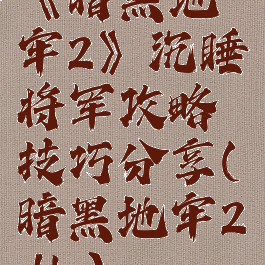 《暗黑地
牢2》沉睡
将军攻略
技巧分享(
暗黑地牢2